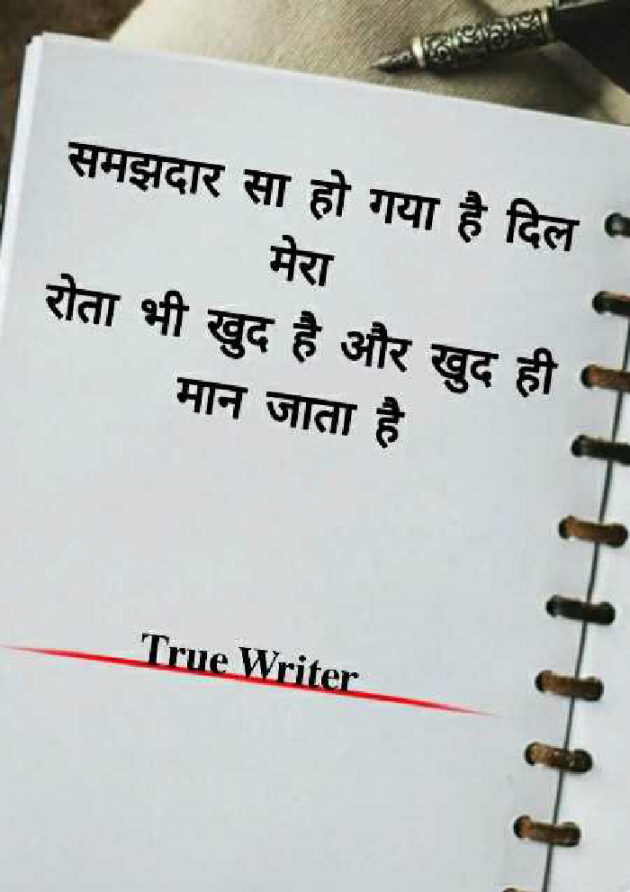 समझदार सा हो गया है दिल
मेरा
रोता भी खुद है और खुद ही
मान जाता है
True Writer